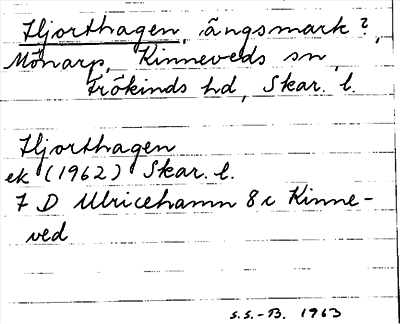 Hjorthagen, ängsmark?,
Mönarp, Kinneveds sn,
Frökinds hd, Skar. l.
Hjorthagen
ek (1962) Skar. l.
7 D Ulricehamn 8 c Kinne-
ved
S.S.-B. 1963